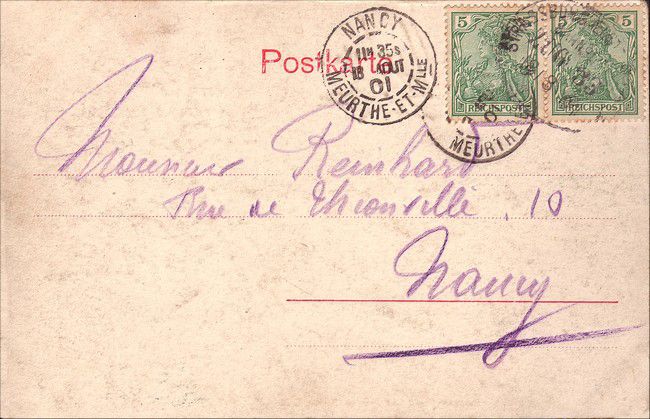 Postkarte
NANCY
11H 35S
18 AOUT
01
MEURTHE-ET-MLLE
5
REICHSPOST
5
REICHSPOST
MEURTHE
Monsieur Reinhard
Rue de Thionville, 10
Nancy